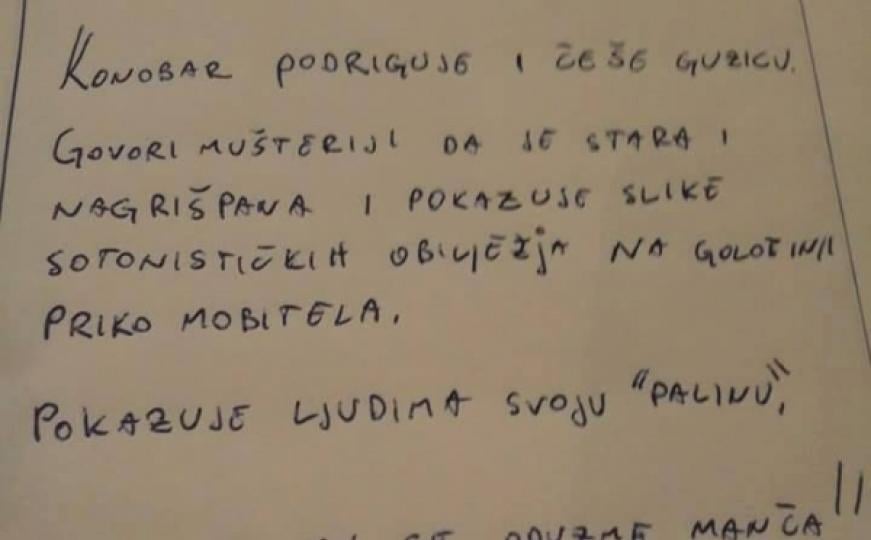 KONOBAR PODRIGUJE I ČEŠE GUZICU.
GOVORI MUŠTERIJI DA JE STARA I
NAGRIŠPANA I POKAZUJE SLIKE
SOTONISTIČKIH OBILJEŽJA NA GOLOTINJI
PRIKO MOBITELA.
POKAZUJE LJUDIMA SVOJU "PALINU",
SE ODUZME MANČA"